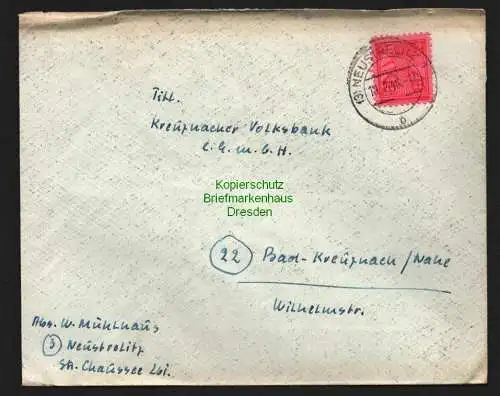 (3) NEUSTRELITZ
b
Titl.
Kreuznacher Volksbank
e.G.m.b.H.
Kopierschutz
Briefmarkenhaus
Dresden
22 Bad-Kreuznach/Nahe
Wilhelmstr.
Abs. W. Mühlhaus
3 Neustrelitz
Chaussee